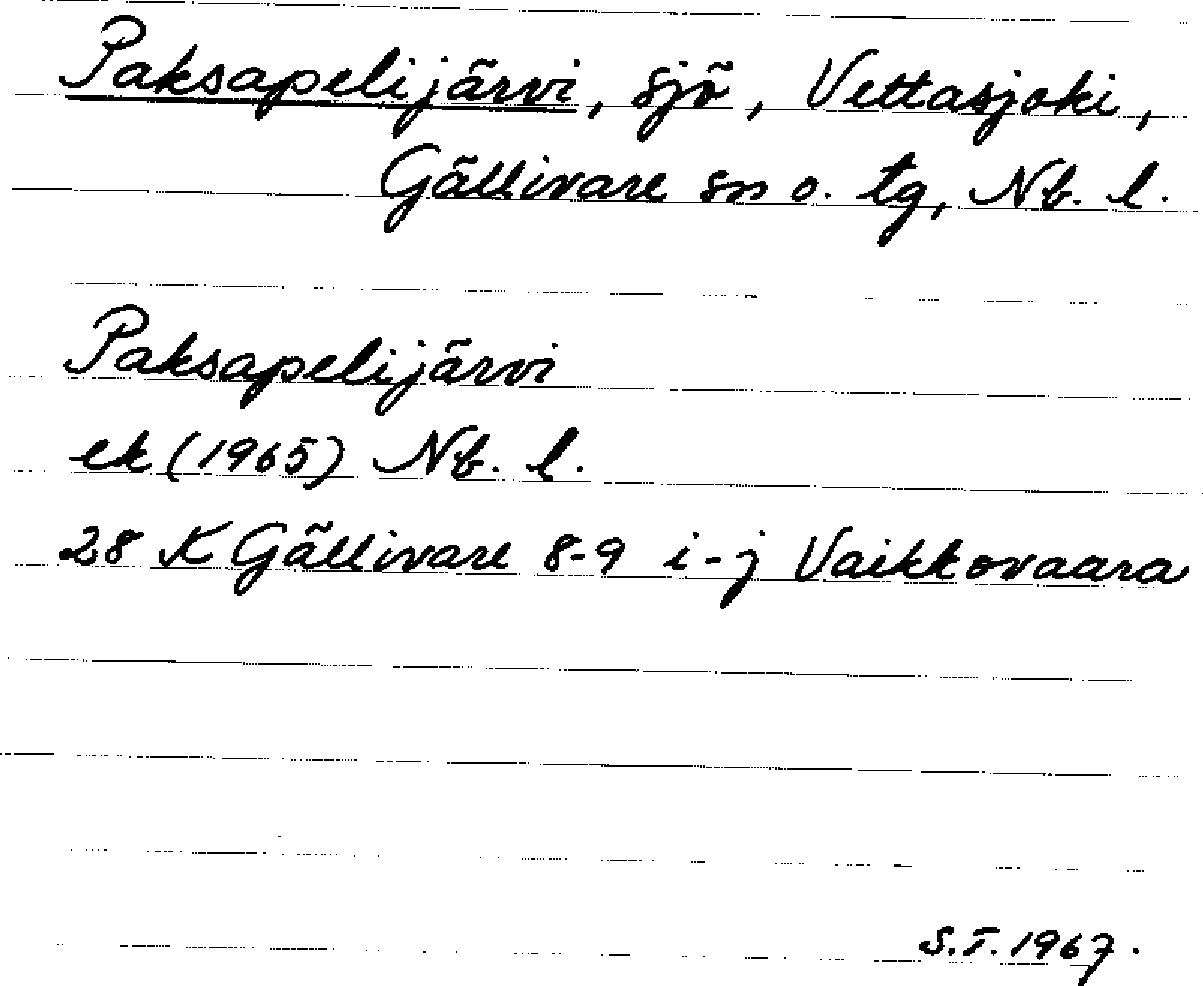 Paksapelijärvi, sjö, Vettasjoki,
Gällivare sn o. tg, Nb. l.
Paksapelijärvi
ek (1965) Nb. l.
28 K Gällivare 8-9 i-j Vaikkovaara
S.T. 1967.